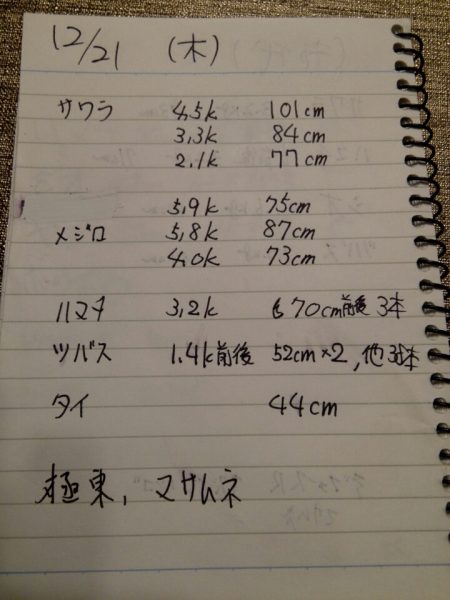 12/21 (木)
サワラ 4,5k 101cm
3,3k 84cm
2.1k 77cm
5,9k 75cm
メジロ 5,8k 87cm
4,0k 73cm
ハマチ 3,2k 70cm前後 3本
ツバス 1.4k前後 52cm×2, 他3本
タイ 44cm
極東, マサムネ